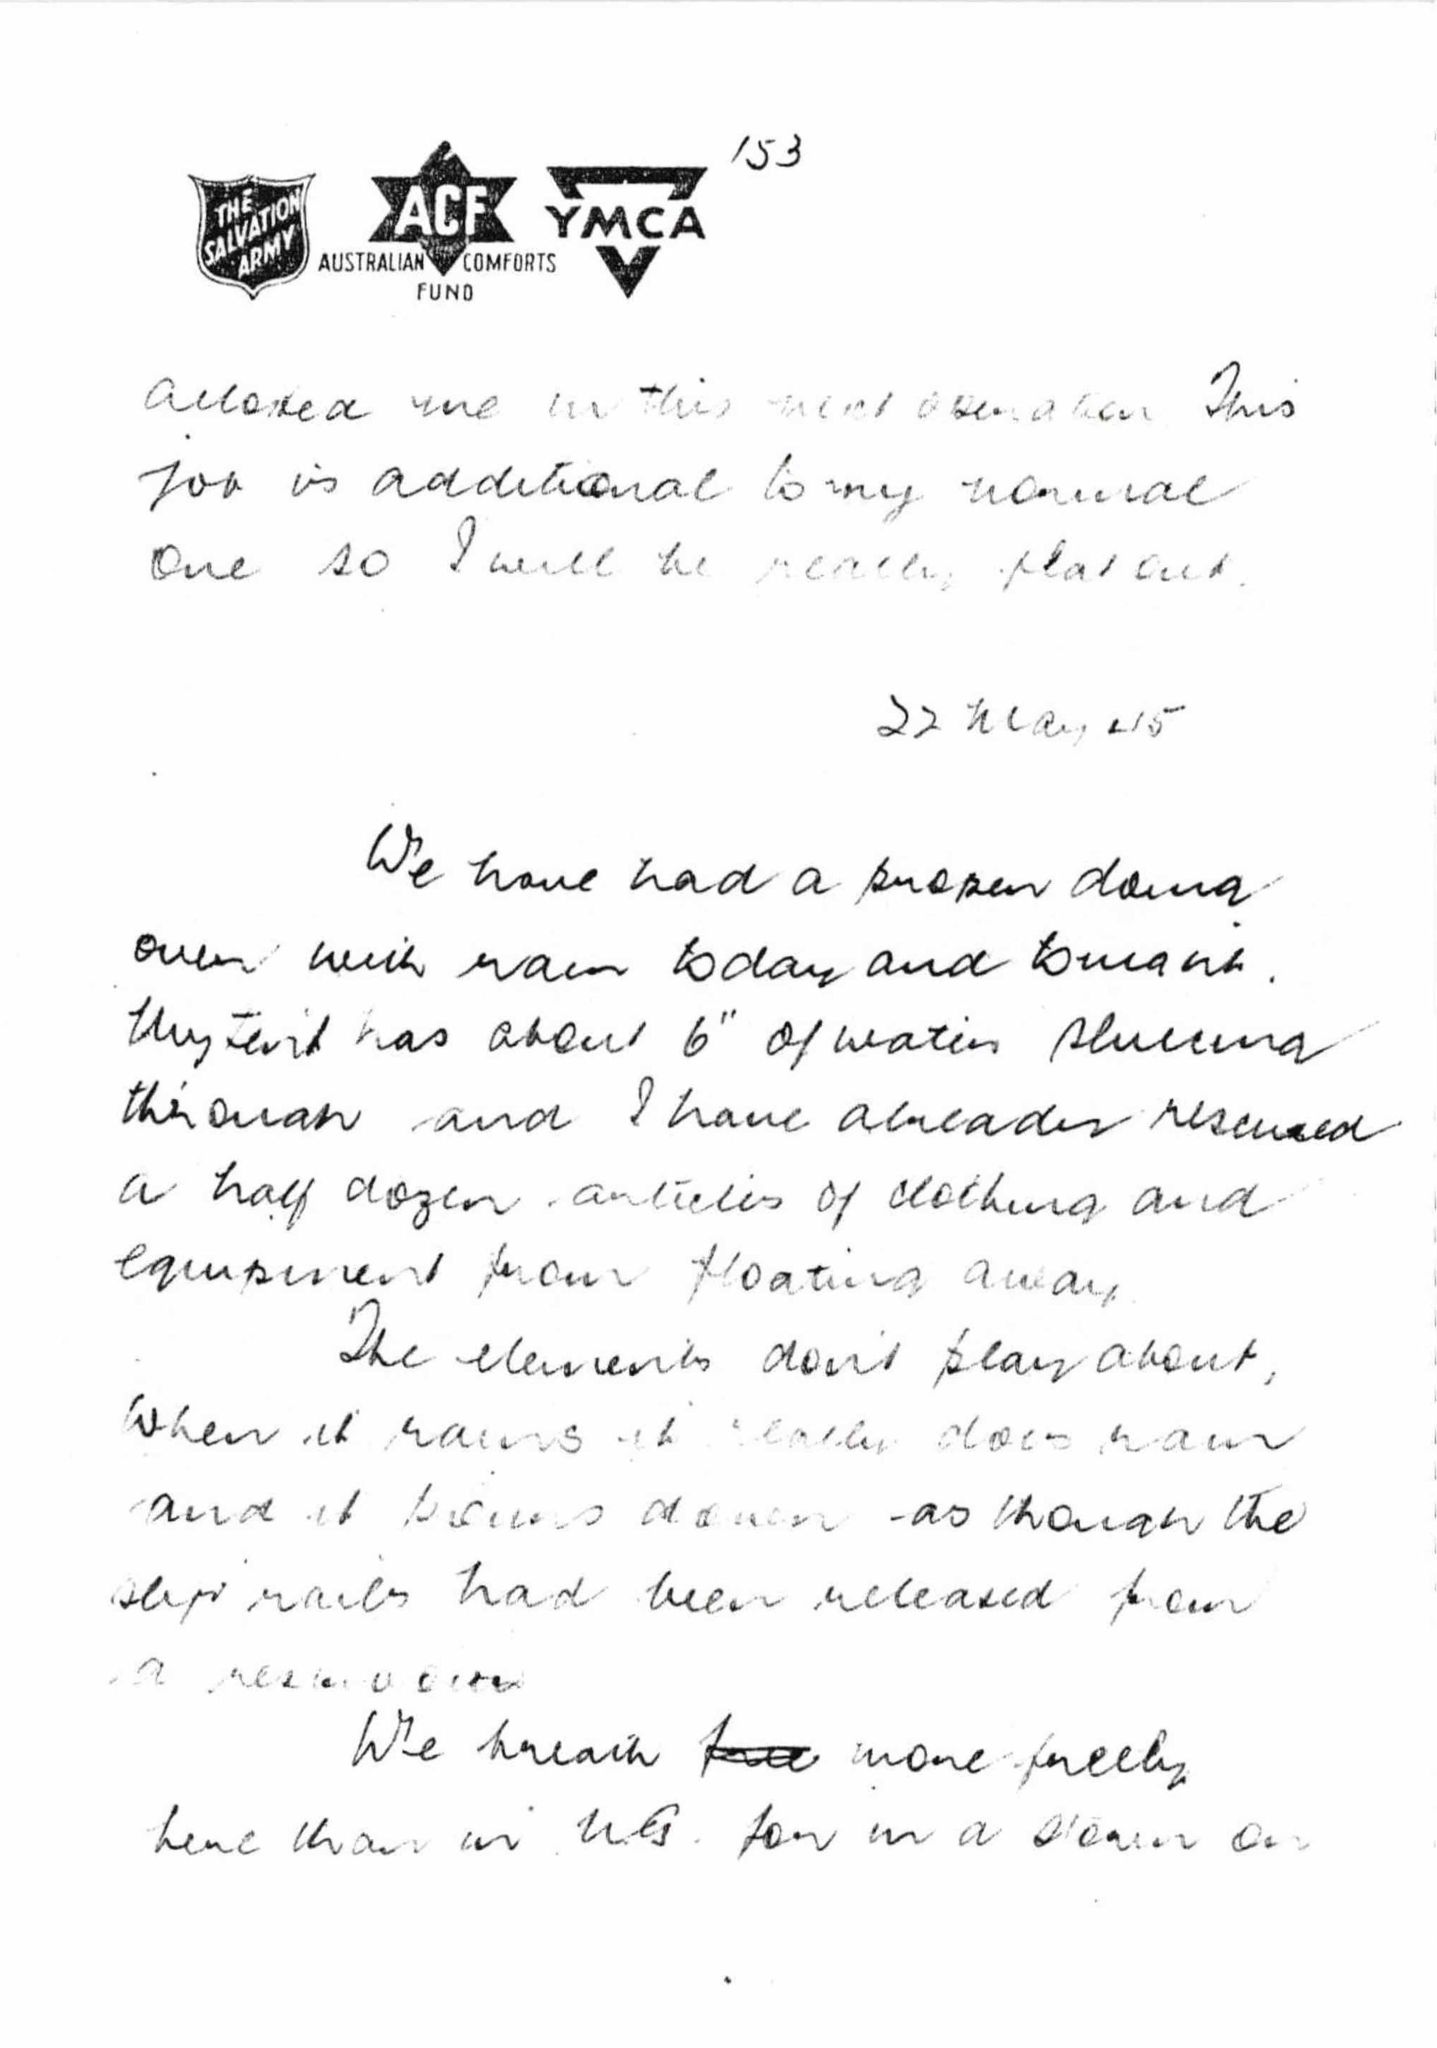 153
THE SALVATION ARMY
ACF
AUSTRALIAN COMFORTS FUND
YMCA
allotted me in this next operation This
job is additional to my normal
one so I will be really flat out.
22 May 45
We have had a proper doing
over with rain today and tonight.
My tent has about 6" of water sluicing
through and I have already rescued
a half dozen articles of clothing and
equipment from floating away.
The elements don't play about,
When it rains it really does rain
and it pours down as though the
slip rails had been released from
a reservoir
We breath free more freely
here than in N.G. for in a storm on